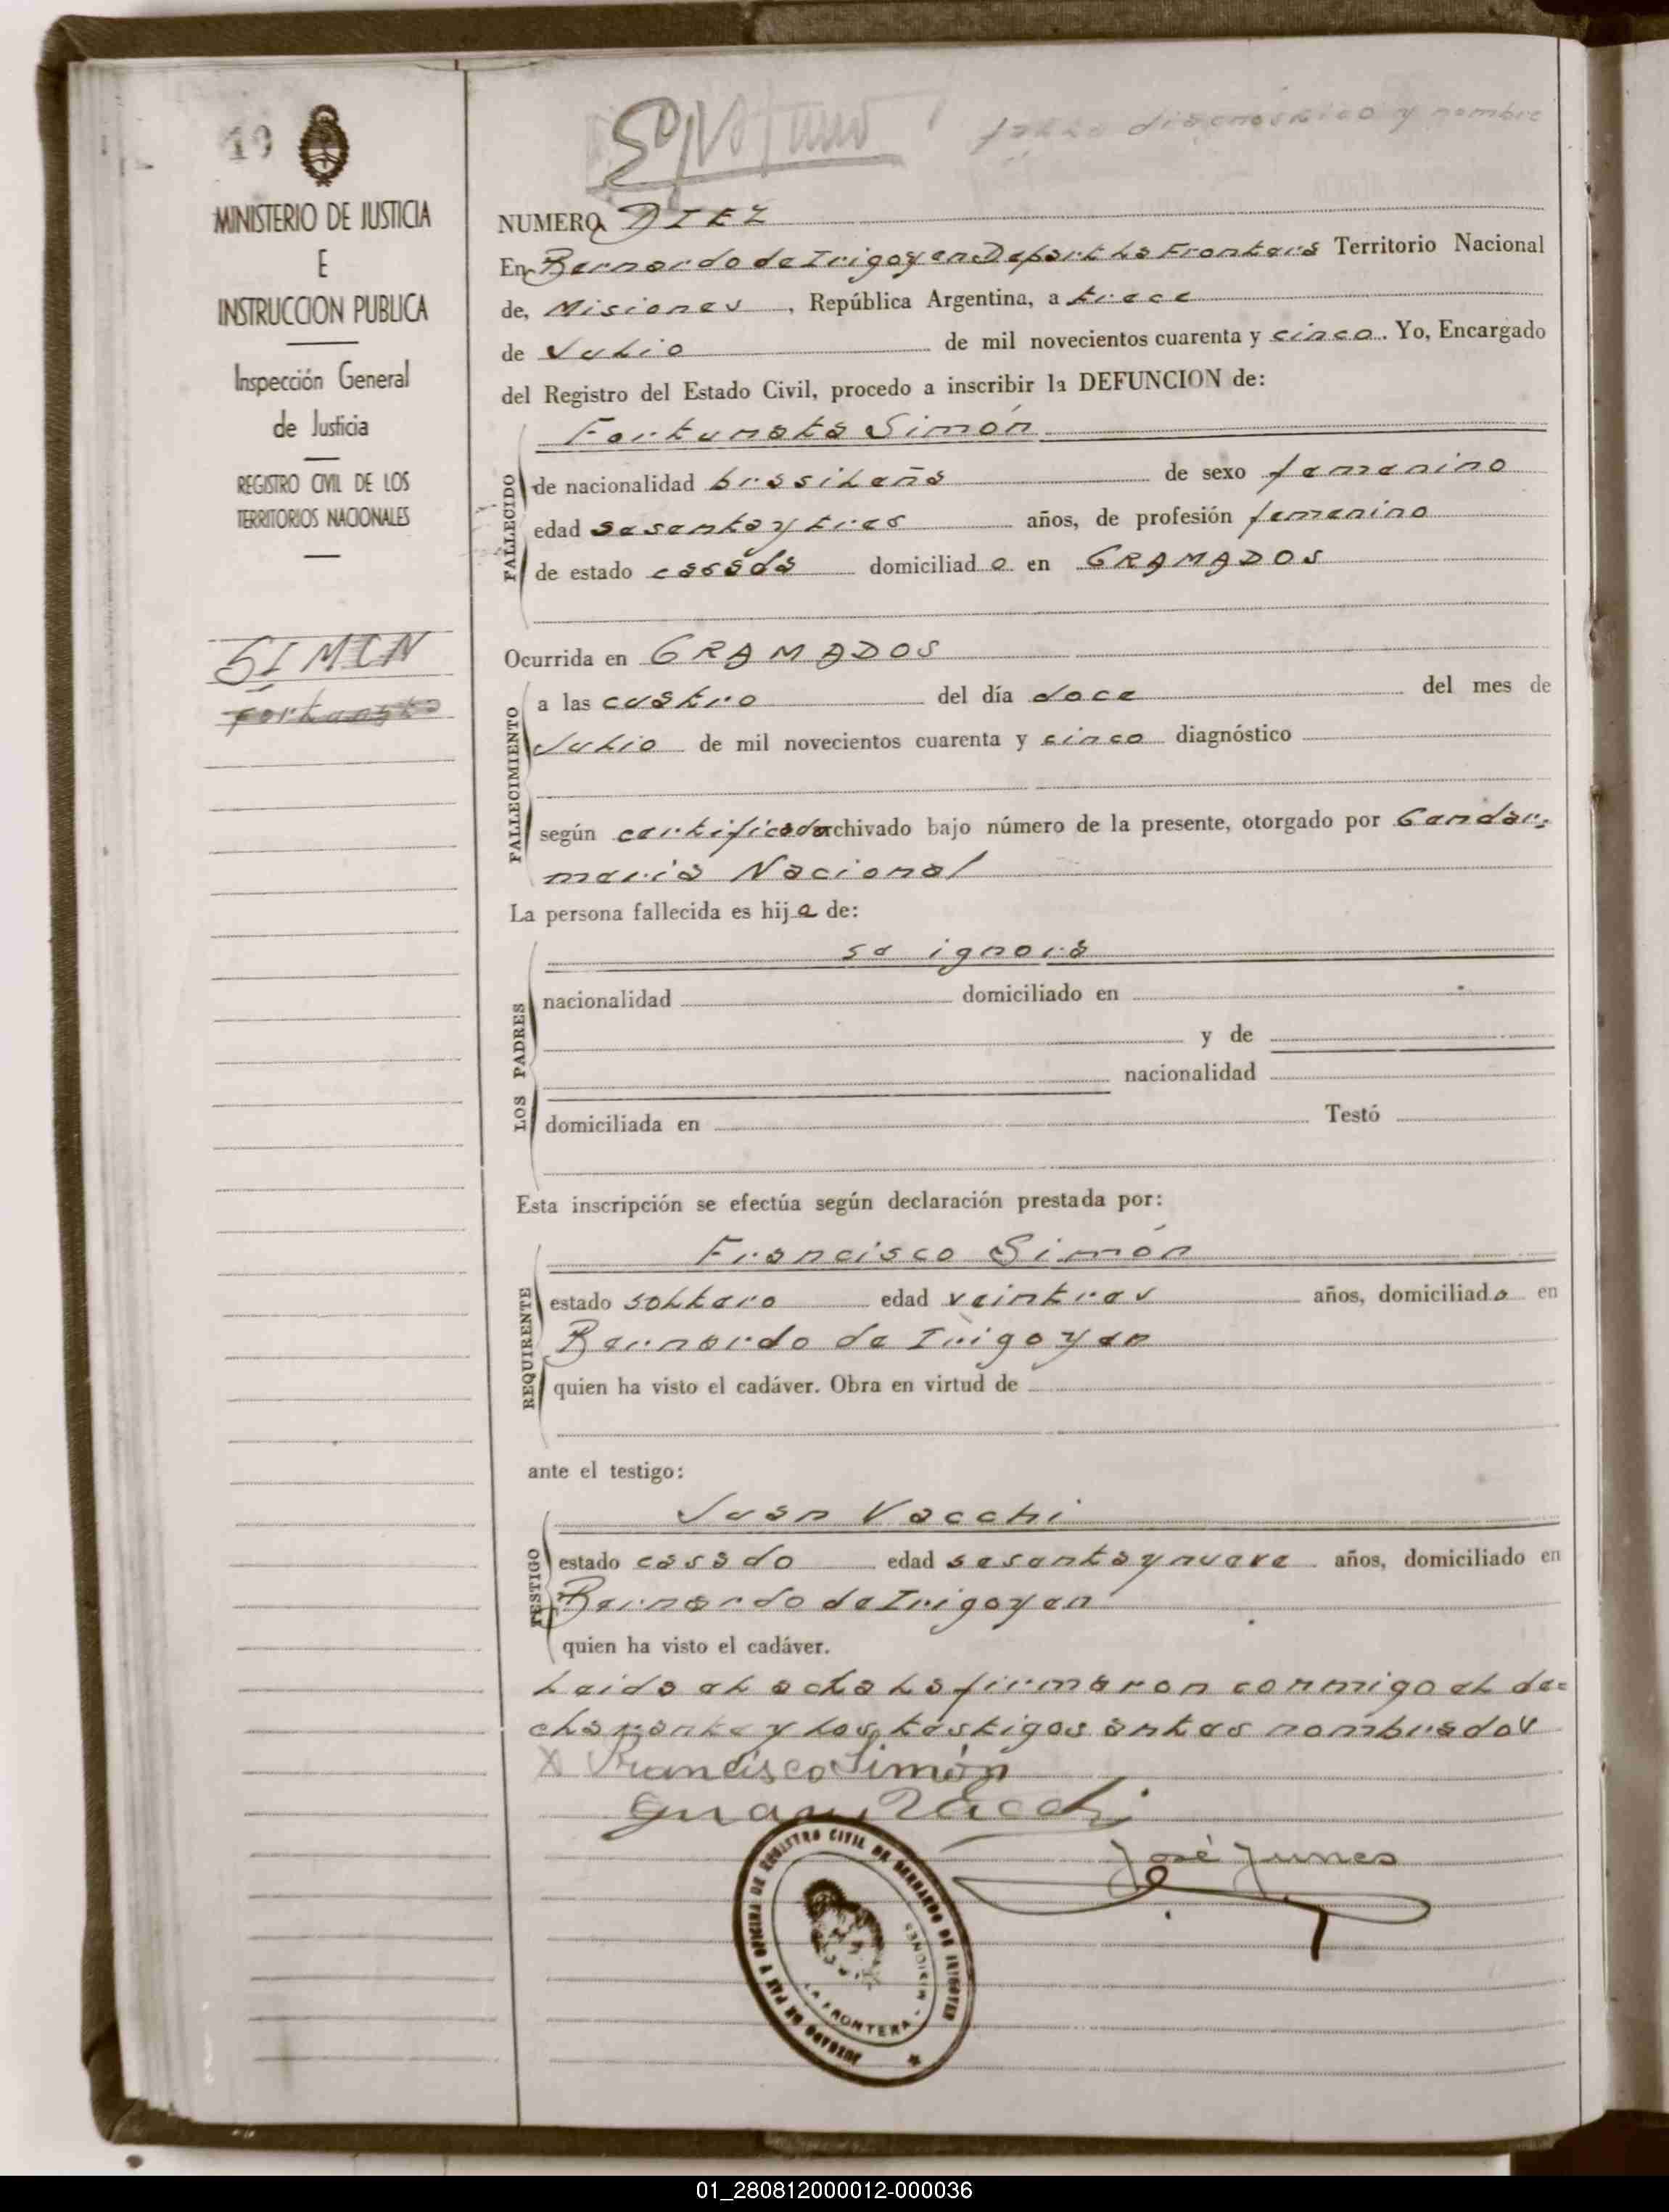 19
MINISTERIO DE JUSTICIA
E
INSTRUCCION PUBLICA
Inspección General
de Justicia
REGISTRO CIVIL DE LOS
TERRITORIOS NACIONALES
SIMON
Fortunata
falta diagnostico y nombre
NUMERO DIEZ
En Bernardo de Irigoyen Depart La Frontera Territorio Nacional
de, Misiones, República Argentina, a trece
de Julio de mil novecientos cuarenta y cinco. Yo, Encargado
del Registro del Estado Civil, procedo a inscribir la DEFUNCION de:
FALLECIDO
Fortunata Simón
de nacionalidad brasileña de sexo femenino
edad sesenta y tres años, de profesión femenino
de estado casada domiciliado en GRAMADOS
Ocurrida en GRAMADOS
FALLECIMIENTO
a las cuatro del día doce del mes de
Julio de mil novecientos cuarenta y cinco diagnóstico
según certificado archivado bajo número de la presente, otorgado por Gendar=
meria Nacional
La persona fallecida es hija de:
LOS PADRES
se ignora
nacionalidad domiciliado en
y de
nacionalidad
domiciliada en Testó
Esta inscripción se efectúa según declaración prestada por:
REQUIRENTE
Francisco Simón
estado soltero edad veintres años, domiciliado en
Bernardo de Irigoyen
quien ha visto el cadáver. Obra en virtud de
ante el testigo:
TESTIGO
Juan Vacchi
estado casado edad sesenta y nueve años, domiciliado en
Bernardo de Irigoyen
quien ha visto el cadáver.
Leida el acta la firmaron conmigo el de=
clarante y los testigos antes nombrados
X Francisco Simón
Juan Vacchi
José Junes
JUZGADO DE PAZ Y OFICINA DE REGISTRO CIVIL DE BERNARDO DE IRIGOYEN
LA FRONTERA - MISIONES
01_280812000012-000036